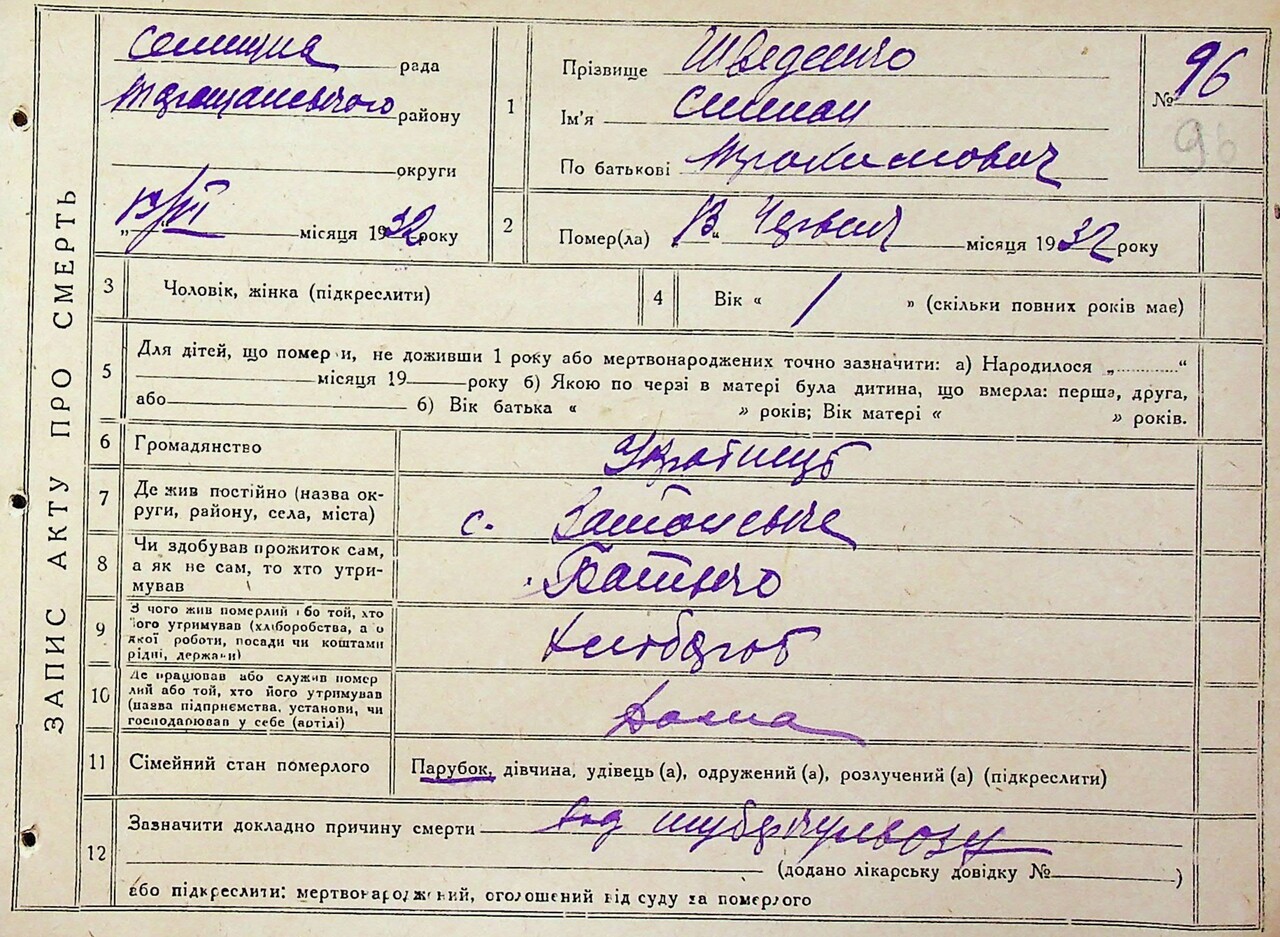 ЗАПИС АКТУ ПРО СМЕРТЬ
Селищна рада
Таращанського району
округи
13/VI місяця 1932 року
1 Прізвище Шведенко
Ім'я Симон
По батькові Трохимович
№ 96
96
2 Помер(ла) „13“ Червня місяця 1932 року
3 Чоловік, жінка (підкреслити)
4 Вік « 1 » (скільки повних років має)
5 Для дітей, що померли, не доживши 1 року або мертвонароджених точно зазначити: а) Народилося „............“
місяця 19 року б) Якою по черзі в матері була дитина, що вмерла: перша, друга,
або б) Вік батька « » років; Вік матері « » років.
6 Громадянство Українець
7 Де жив постійно (назва ок-
руги, району, села, міста) с.
8 Чи здобував прожиток сам,
а як не сам, то хто утри-
мував Батько
9 З чого жив померлий або той, хто
його утримував (хліборобства, а о
якої роботи, посади чи коштами
рідні, держави) Хлібороб
10 Де працював або служив помер
лий або той, хто його утримував
(назва підприємства, установи, чи
господарював у себе (артілі) Дома
11 Сімейний стан померлого Парубок, дівчина, удівець (а), одружений (а), розлучений (а) (підкреслити)
12 Зазначити докладно причину смерти від туберкульозу
(додано лікарську довідку № )
або підкреслити: мертвонароджений, оголошений від суду за померлого